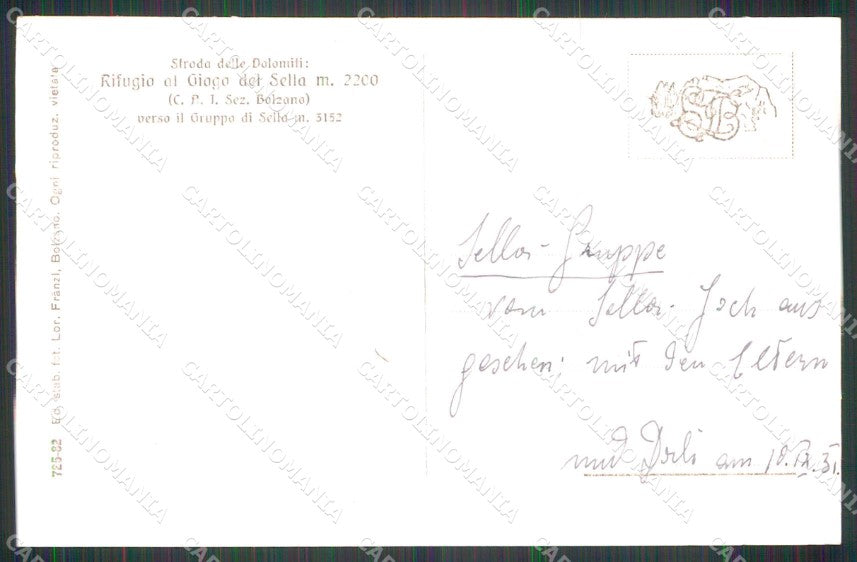 Strada delle Dolomiti:
Rifugio al Giogo del Sella m. 2200
(C. P. I. Sez. Bolzano)
verso il Gruppo di Sella m. 3152
726-82 Ed. stab. fot. Lor. Fränzl, Bolzano. Ogni riproduz. vietata
Sella-Gruppe
vom Sella-Joch aus
gesehen; mit den Eltern
und am 10. IX. 31.
CARTOLINOMANIA